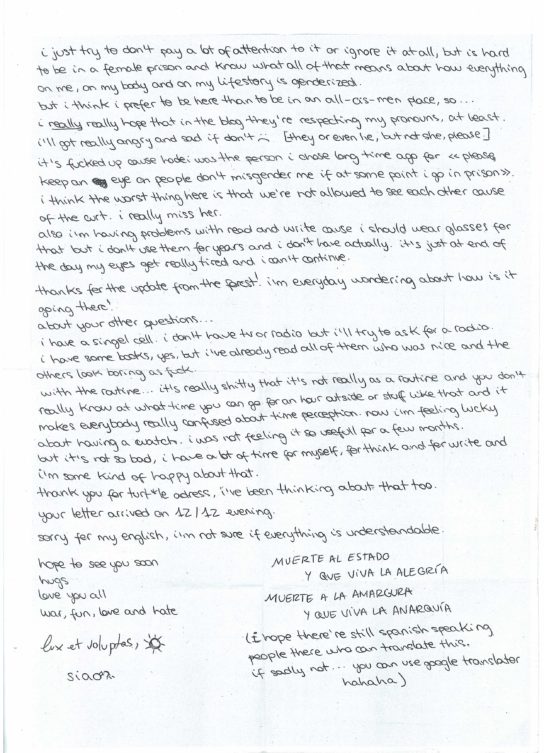 i just try to don't pay a lot of attention to it or ignore it at all, but is hard
to be in a female prison and know what all of that means about how everything
on me, on my body and on my lifestory is genderized.
but i think i prefer to be here than to be in an all-cis-men place, so...
i really really hope that in the blog they're respecting my pronouns, at least.
i'll got really angry and sad if don't :( [they or even he, but not she, please]
it's fucked up cause hodei was the person i chose long time ago for << please,
keep an eye on people don't misgender me if at some point i go in prison>>.
i think the worst thing here is that we're not allowed to see each other cause
of the curt. i really miss her.
also i'm having problems with read and write cause i should wear glasses for
that but i don't use them for years and i don't have actually. it's just at end of
the day my eyes get really tired and i can't continue.
thanks for the update from the forest! i'm everyday wondering about how is it
going there!
about your other questions...
i have a singel cell. i don't have tv or radio but i'll try to ask for a radio.
i have some books, yes, but i've already read all of them who was nice and the
others look boring as f*ck.
with the routine... it's really shitty that it's not really as a routine and you don't
really know at what time you can go for an hour outside or stuff like that and it
makes everybody really confused about time perception. now i'm feeling lucky
about having a watch. i was not feeling it so usefull for a few months.
but it's not so bad, i have a lot of time for myself, for think and for write and
i'm some kind of happy about that.
thank you for turt*le adress, i've been thinking about that too.
your letter arrived on 12/12 evening.
sorry for my english, i'm not sure if everything is understandable.
hope to see you soon
hugs
love you all
war, fun, love and hate
lux et voluptas,
siao
MUERTE AL ESTADO
Y QUE VIVA LA ALEGRÍA
MUERTE A LA AMARGURA
Y QUE VIVA LA ANARQUÍA
(i hope there're still spanish speaking
people there who can translate this.
if sadly not... you can use google translator
hahaha)